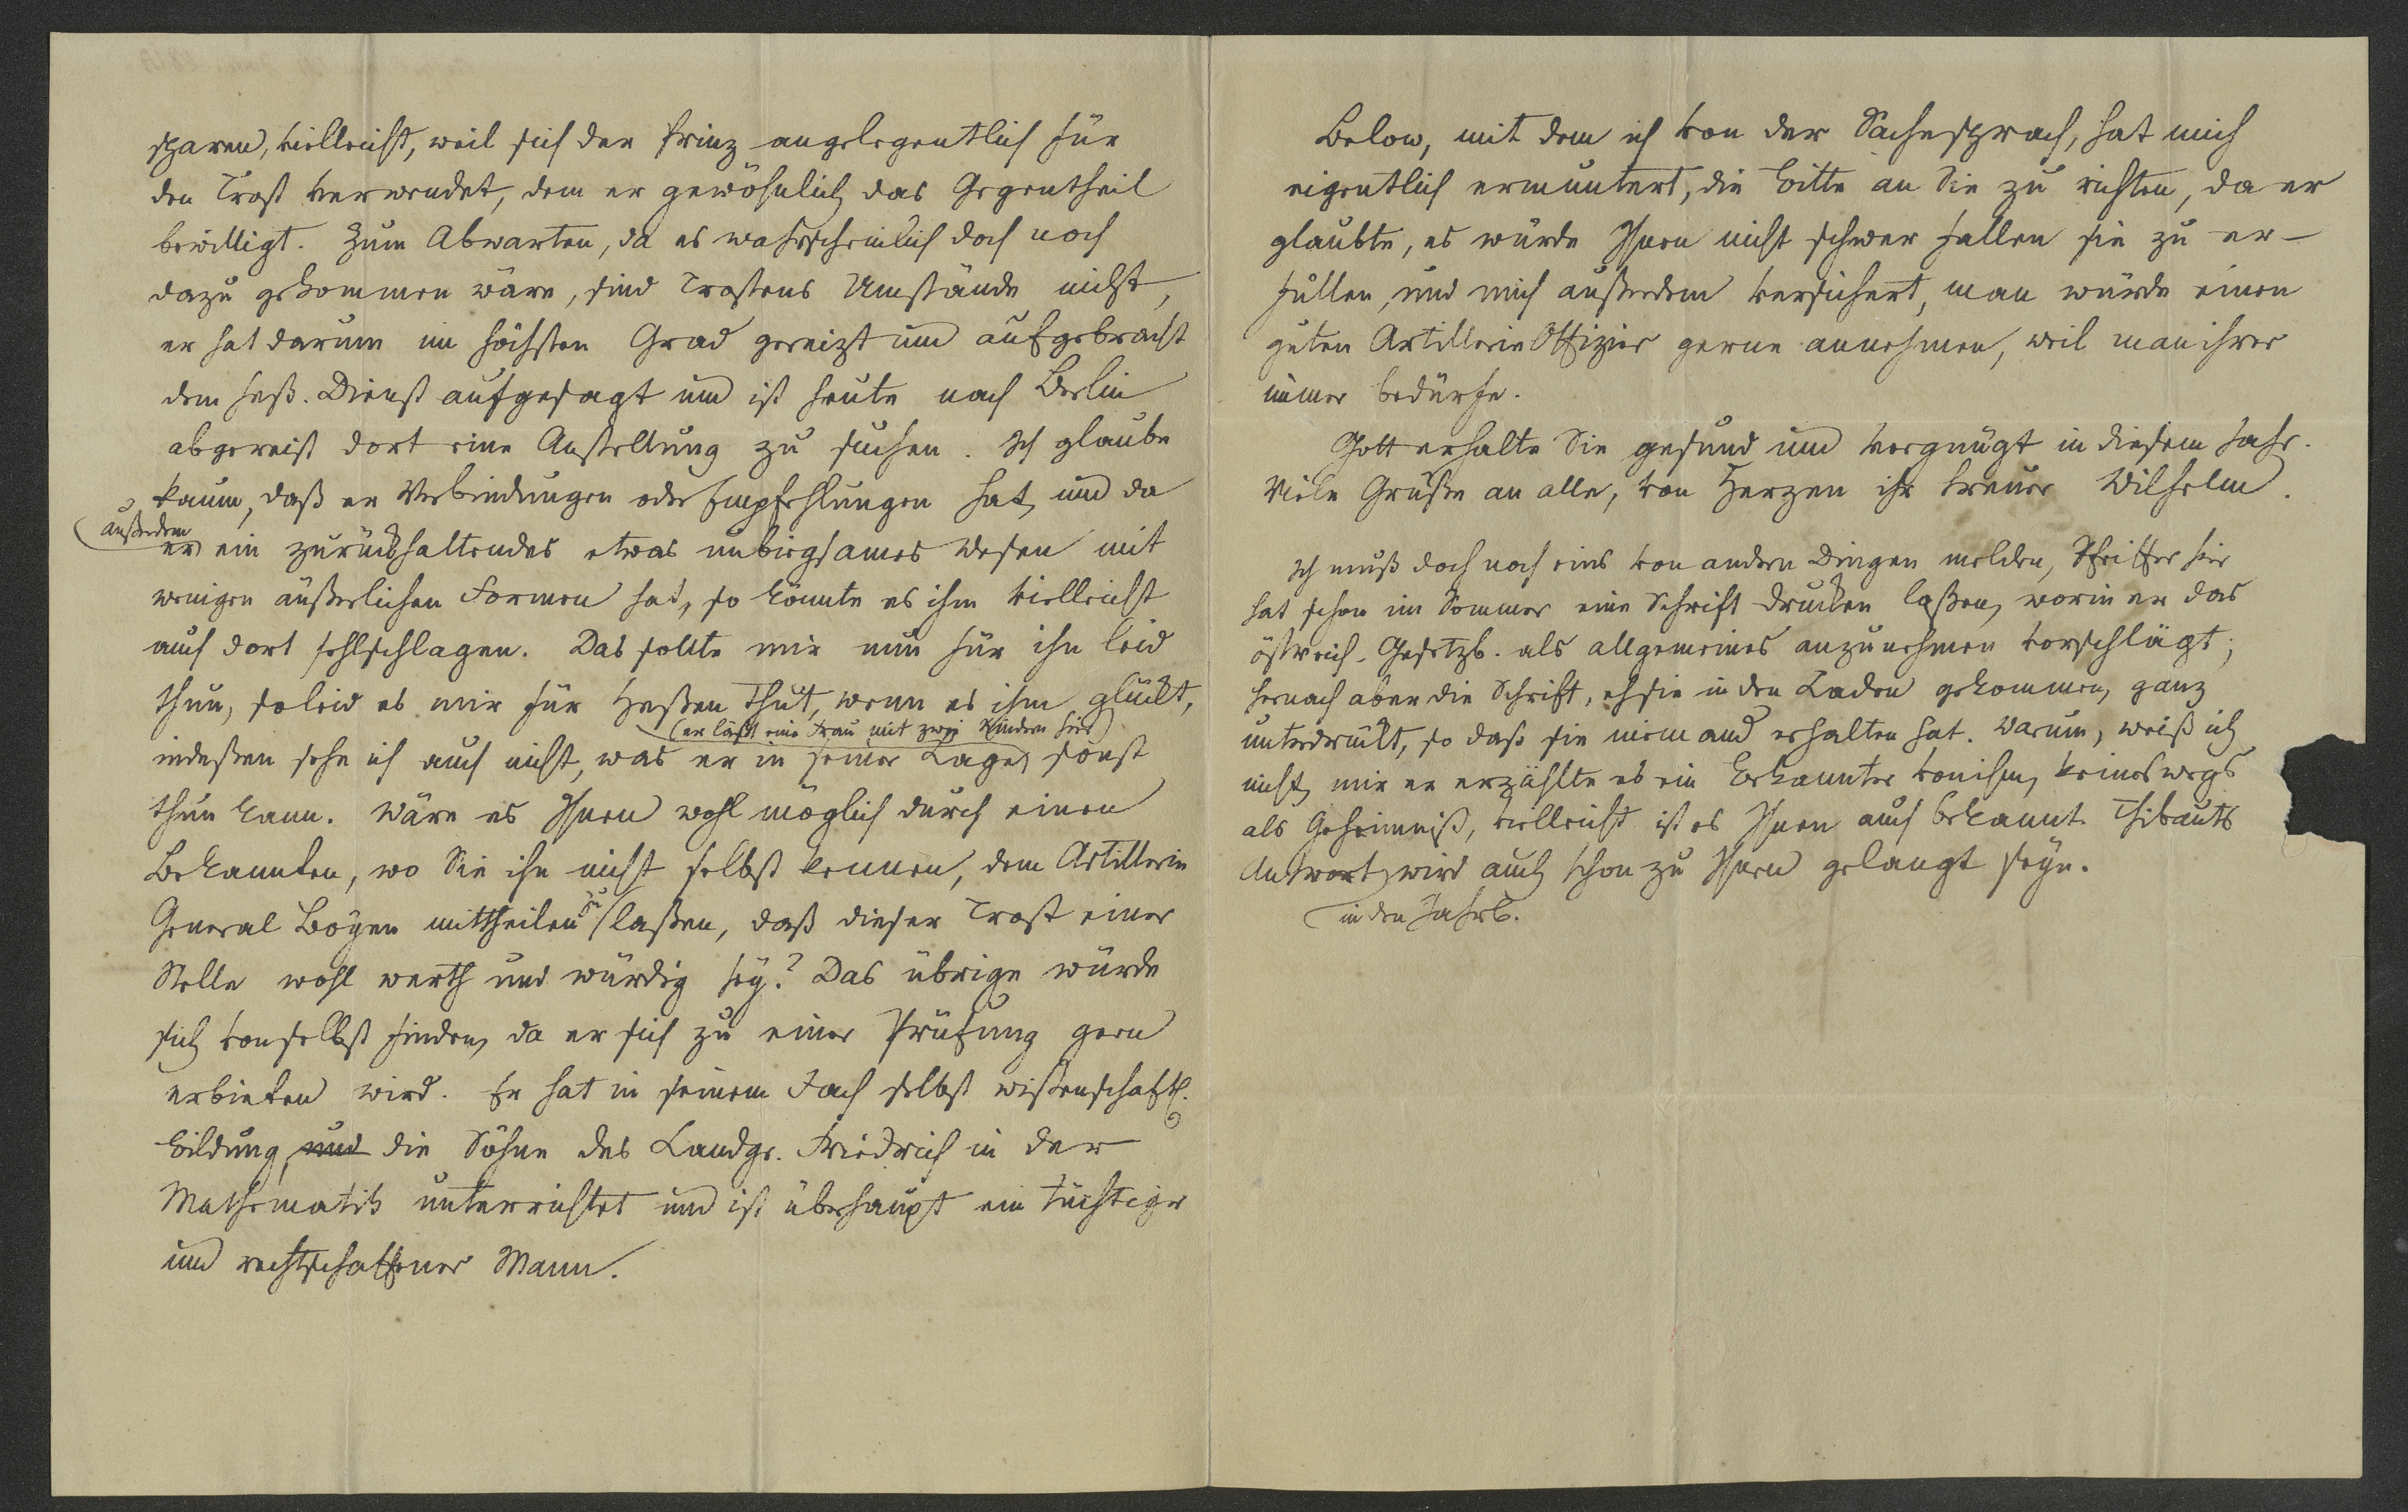 sparen, vielleicht, weil sich der Prinz angelegentlich für
den Trost verwendet, dem er gewöhnlich das Gegentheil
bewilligt. Zum Abwarten, da es wahrscheinlich doch noch
dazu gekommen wäre, sind Trostens Umstände nicht,
er hat darum im höchsten Grad gereizt und aufgebracht
dem heß. Dienst aufgesagt und ist heute nach Berlin
abgereist dort eine Anstellung zu suchen. Ich glaube
kaum, daß er Verbindungen oder Empfehlungen hat, und da
außerdem
er ein zurückhaltendes etwas unbiegsames Wesen mit
wenigen äußerlichen Formen hat, so könnte es ihm vielleicht
auch dort fehlschlagen. Das sollte mir nun für ihn leid
thun, so leid es mir für Heßen thut, wenn es ihm glückt,
(er läßt eine Frau mit zwei Kindern hier)
indeßen sehe ich auch nicht, was er in seiner Lage sonst
thun kann. Wäre es Ihnen wohl möglich durch einen
Bekannten, wo Sie ihn nicht selbst kennen, dem Artillerie
General Boyen mittheilen zu laßen, daß dieser Trost einer
Stelle wohl werth und würdig sey? Das übrige würde
sich von selbst finden, da er sich zu einer Prüfung gern
erbieten wird. Er hat in seinem Fach selbst wißenschaftl.
Bildung, und die Söhne des Landgr. Friedrich in der
Mathematik unterrichtet und ist überhaupt ein tüchtiger
und rechtschaffener Mann.
Below, mit dem ich von der Sache sprach, hat mich
eigentlich ermuntert, die Bitte an Sie zu richten, da er
glaubte, es würde Ihnen nicht schwer fallen sie zu er-
füllen, und mich außerdem versichert, man würde einen
guten Artillerie Offizier gerne annehmen, weil man ihrer
immer bedürfe.
Gott erhalte Sie gesund und vergnügt in diesem Jahr.
Viele Grüße an alle, von Herzen ihr treuer Wilhelm.
Ich muß doch noch eins von andern Dingen melden, Pfeiffer hier
hat schon im Sommer eine Schrift drucken laßen, worin er das
östreich. Gesetzb. als allgemeines anzunehmen vorschlägt;
hernach aber die Schrift, eh sie in den Laden gekommen, ganz
unterdrückt, so daß sie niemand erhalten hat. Warum, weiß ich
nicht, mir er erzählte es ein Bekannter von ihm, keineswegs
als Geheimniß, vielleicht ist es Ihnen auch bekannt. Thibauts
Antwort wird auch schon zu Ihnen gelangt seyn.
in den Jahrb.